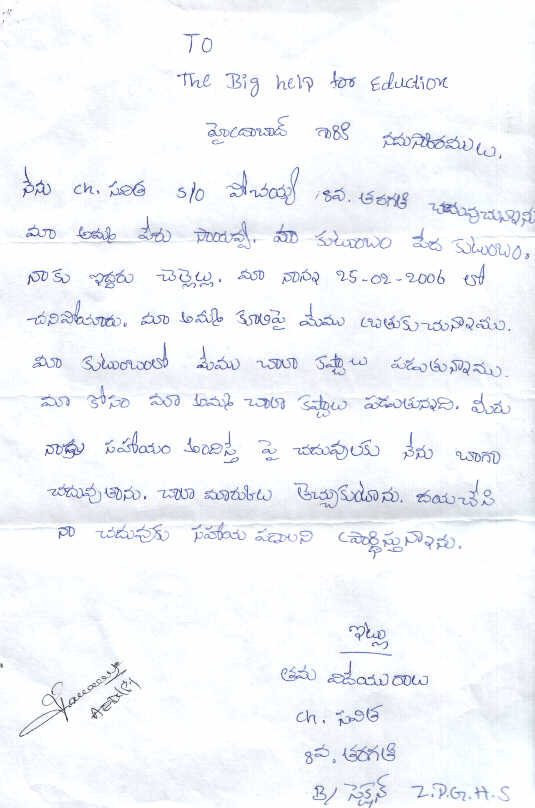 TO
The Big help for Eduction
హైదరాబాద్ గారికి నమస్కారములు.
నేను ch. సవిత s/o పోచయ్య 8వ. తరగతి చదువుచున్నాను
మా అమ్మ పేరు సాయవ్వ. మా కుటుంబం పేద కుటుంబం.
నాకు ఇద్దరు చెల్లెల్లు. మా నాన్న 25-02-2006 లో
చనిపోయారు. మా అమ్మ కూలిపై మేము బ్రతుకుచున్నాము.
మా కుటుంబంలో మేము చాలా కష్టాలు పడుతున్నాము.
మా కోసం మా అమ్మ చాలా కష్టాలు పడుతున్నది. మీరు
సహాయం అందిస్తే పై చదువులకు నేను బాగా
చదువుతాను. చాలా మార్కులు తెచ్చుకుంటాను. దయచేసి
నా చదువుకు సహాయ పడాలని ప్రార్థిస్తున్నాను.
ఇట్లు
తమ విదేయురాలు
ch. సవిత
8వ. తరగతి
B/ సెక్షన్ Z.P.G.H.S